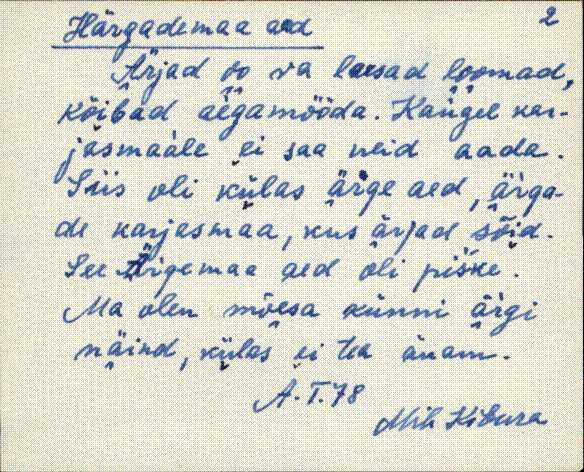 Härgademaa aed 2
Ärjad oo va laesad loomad,
kõibad aegamööda. Kaugel kar-
jasmaale ei saa neid aada.
Siis oli külas ärge aed, ärga-
de karjasmaa, kus ärjad sõid.
See Ärgemaa aed oli piske.
Ma olen mõesa künni ärgi
näind, külas ei tea änam.
A. T. 78
Mih Kibura